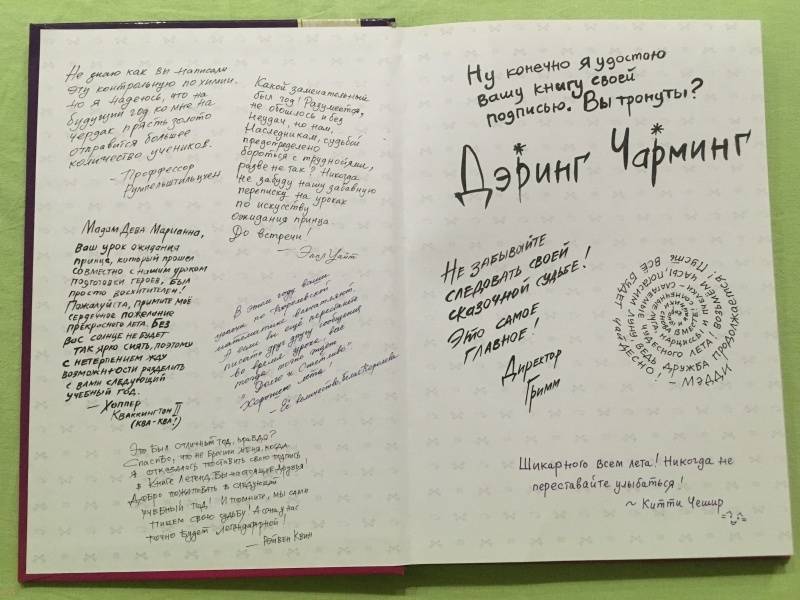 Не знаю как вы написали
эту контрольную по химии.
Но я надеюсь, что на
будущий год ко мне на
чердак прясть золото
отправится большее
количество учеников.
- Профессор
Румпельштильцхен
Какой замечательный
был год! Разумеется,
не обошлось и без
неудач, но нам,
Наследникам, судьбой
предопределено
бороться с трудностями,
разве не так? Никогда
не забуду нашу забавную
переписку на уроках
по искусству
ожидания принца.
До встречи!
- Эппл Уайт
Мадам Дева Марианна,
Ваш урок ожидания
принца, который прошел
совместно с нашим уроком
подготовки героев, был
просто восхитителен!
Пожалуйста, примите моё
сердечное пожелание
прекрасного лета. Без
вас солнце не будет
так ярко сиять, поэтому
с нетерпением жду
возможности разделить
с вами следующий
учебный год.
- Хоппер
Кваккингтон II
(ква-ква!)
В этом году ваши
успехи по Королевской
математике
А если вы ещё перестанете
писать друг другу сообщения
во время урока, вас
тогда точно ждёт
"Долго и Счастливо"
Хорошего лета!
- Её величество Белая Королева
Это был отличный год, правда?
Спасибо, что не бросили меня, когда
я отказалась поставить свою подпись
в Книге Легенд. Вы настоящие друзья!
Добро пожаловать в следующий
учебный год! И помните, мы сами
пишем свою судьбу! А она у нас
точно будет легендарной!
- Рэйвен Квин
Ну конечно я удостою
вашу книгу своей
подписью. Вы тронуты?
Дэринг Чарминг
Не забывайте
следовать своей
сказочной судьбе!
Это самое
главное!
Директор
Гримм
чудесного лета!
возьмём часы, погасим луну, ведь дружба продолжается! Пусть
всё будет чай
десно!
- Мэдди
Шикарного всем лета! Никогда не
переставайте улыбаться!
~ Китти Чешир